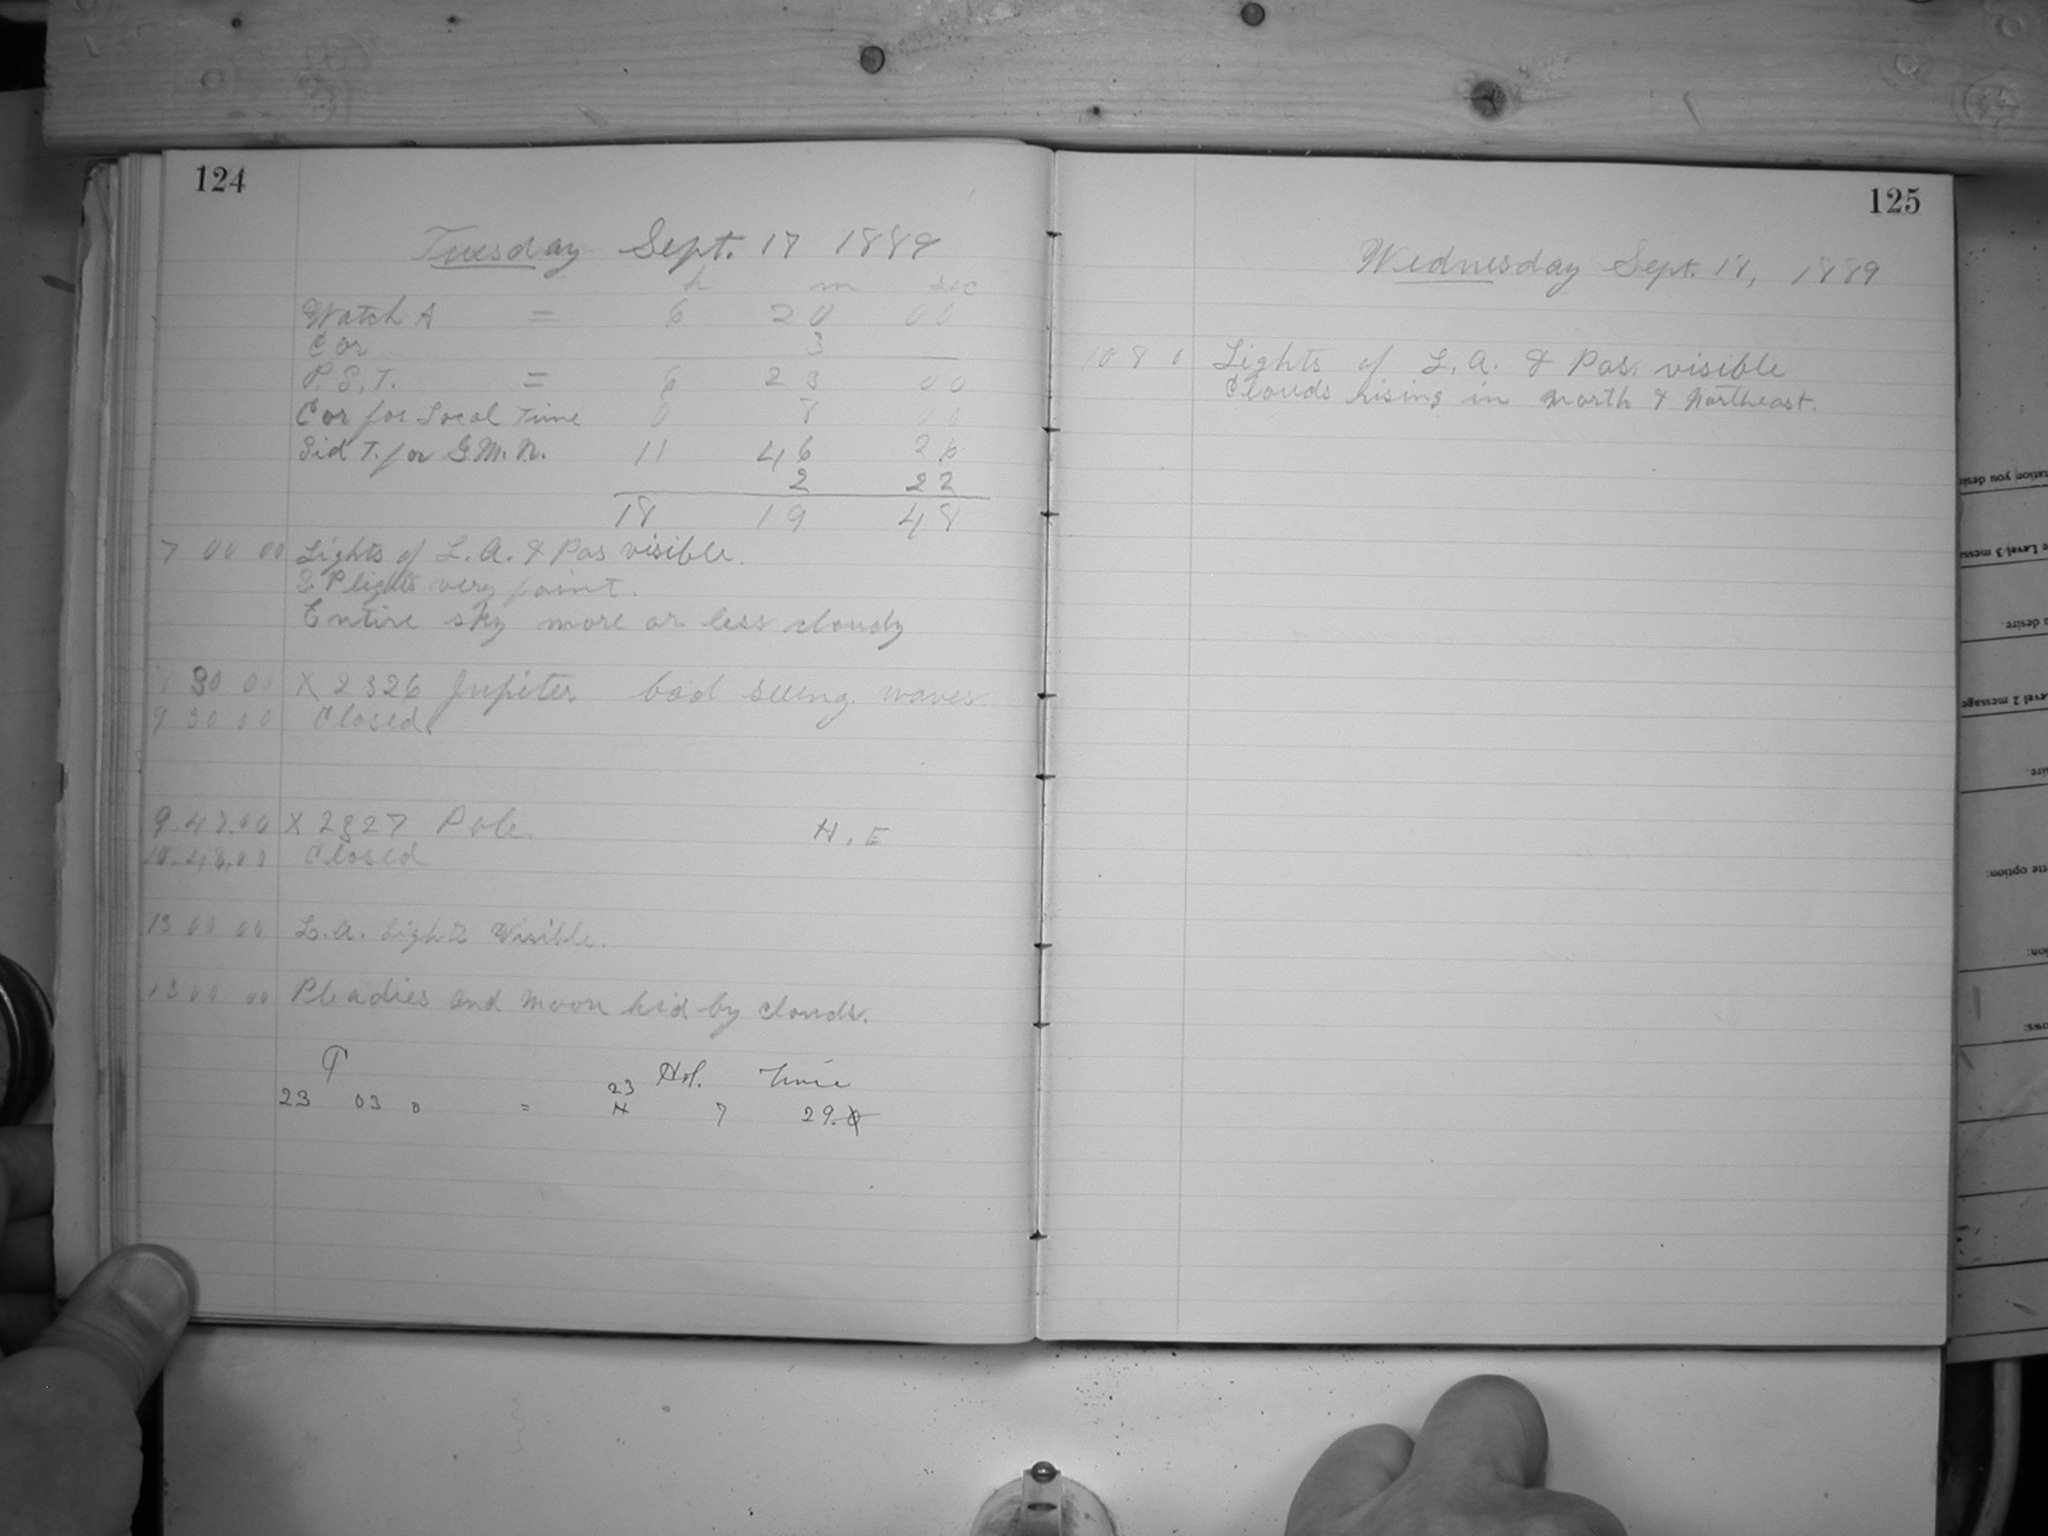 124
Tuesday Sept. 17 1889
h m sec
Watch A = 6 20 00
Cor 3
P.S.T. = 6 23 00
Cor for Local Time 0 8 00
Sid T. for G.M.N. 11 46 26
2 22
18 19 48
7 00 00 Lights of L.A. & Pas visible.
S.P lights very faint.
Entire sky more or less cloudy
8 30 00 X 2326 Jupiter bad seeing. waves
9 30 00 Closed.
9.47.00 X 2327 Pole. H.E
10.48.00 Closed
13 00 00 L.A. Lights Visible.
13 00 00 Pleadies and moon hid by clouds.
Hol. Time
23
23 03 0 = 7 29.
125
Wednesday Sept. 18, 1889
10 8 0 Lights of L.A. & Pas. visible
Clouds rising in North & Northeast.
tation you desire
e Level 3 message
u desire.
evel 2 message
ire.
tte option:
ion:
ows: